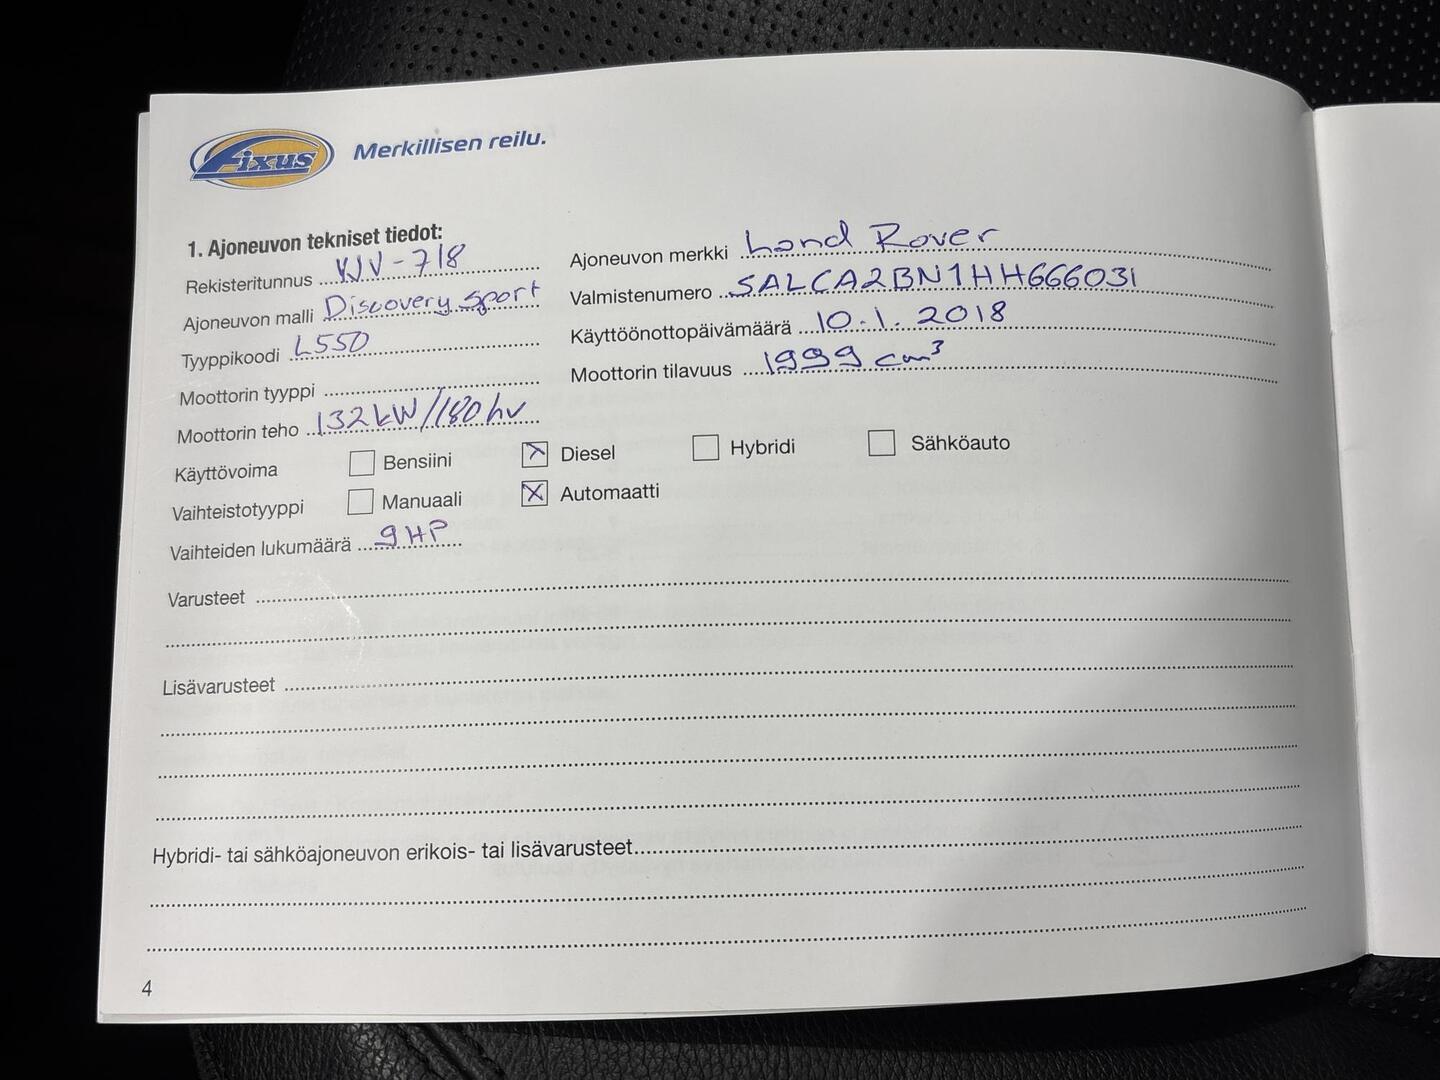 Fixus Merkillisen reilu.
1. Ajoneuvon tekniset tiedot:
Rekisteritunnus VJV-718
Ajoneuvon merkki Land Rover
Ajoneuvon malli Discovery sport
Valmistenumero SALCA2BN1HH666031
Tyyppikoodi L550
Käyttöönottopäivämäärä 10.1.2018
Moottorin tyyppi
Moottorin tilavuus 1999 cm³
Moottorin teho 132kW/180hv
Käyttövoima Bensiini Diesel Hybridi Sähköauto
Vaihteistotyyppi Manuaali Automaatti
Vaihteiden lukumäärä 9HP
Varusteet
Lisävarusteet
Hybridi- tai sähköajoneuvon erikois- tai lisävarusteet
4